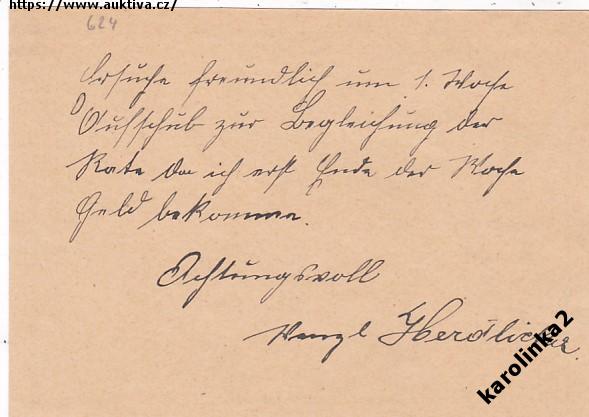 https://www.auktiva.cz/
624
Ersuche freundlich um 1. Woche
Aufschub zur Begleichung der
Rate da ich erst Ende der Woche
Geld bekomme.
Achtungsvoll
Wenzl
karolinka2